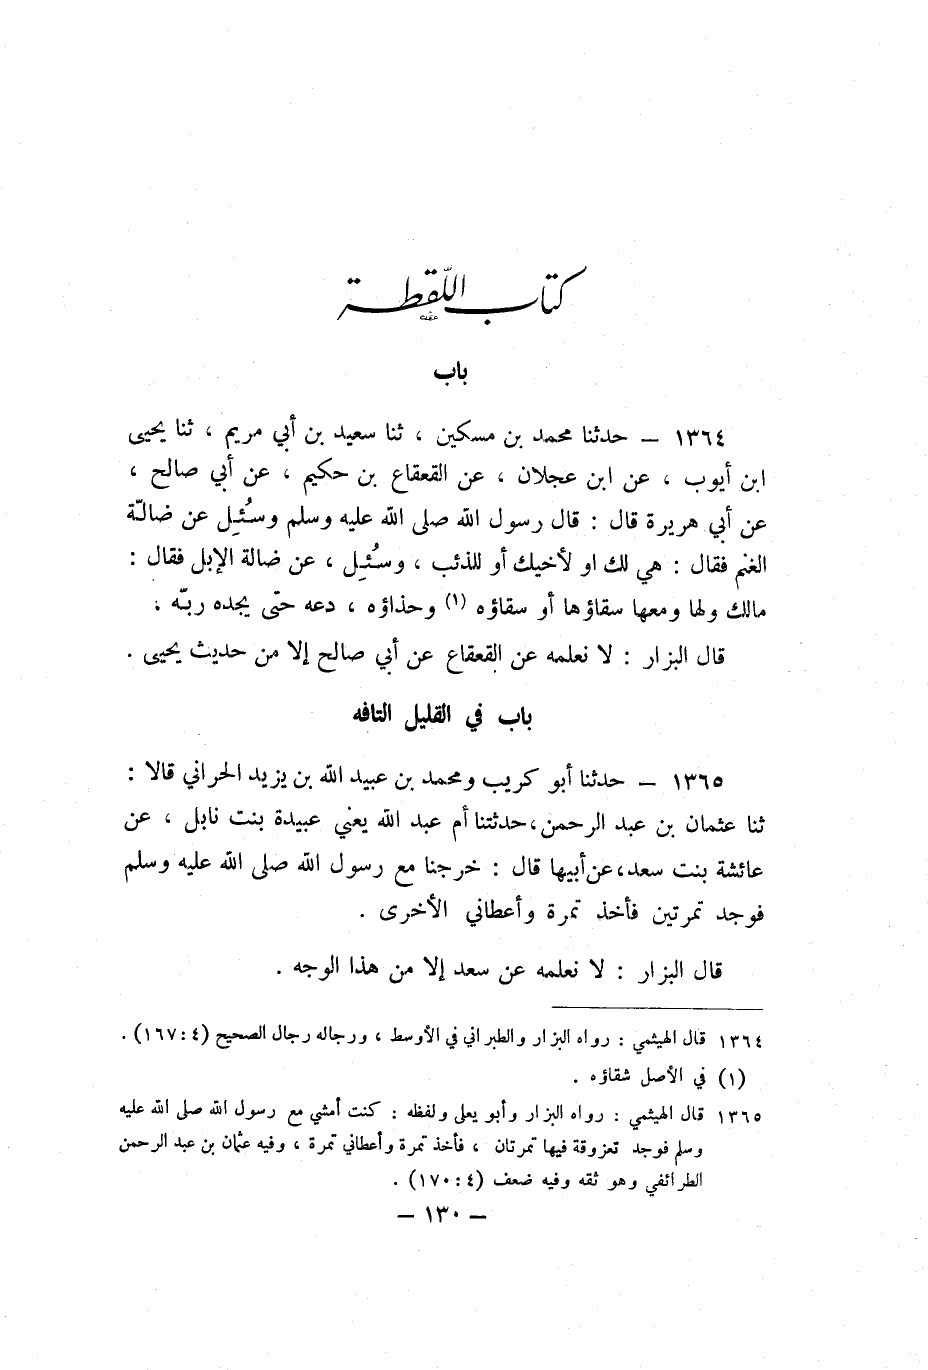 كتاب اللّقطة
باب
١٣٦٤ – حدثنا محمد بن مسكين ، ثنا سعيد بن أبي مريم ، ثنا يحيى
ابن أيوب ، عن ابن عجلان ، عن القعقاع بن حكيم ، عن أبي صالح ،
عن أبي هريرة قال : قال رسول الله صلى الله عليه وسلم وسُئِل عن ضالّة
الغنم فقال : هي لك او لأخيك أو للذئب ، وسُئِل ، عن ضالة الإبل فقال :
مالك ولها ومعها سقاؤها أو سقاؤه (١) وحذاؤه ، دعه حتى يجده ربّه .
قال البزار : لا نعلمه عن القعقاع عن أبي صالح إلا من حديث يحيى .
باب في القليل التافه
١٣٦٥ – حدثنا أبو كريب ومحمد بن عبيد الله بن يزيد الحراني قالا :
ثنا عثمان بن عبد الرحمن، حدثتنا أم عبد الله يعني عبيدة بنت نابل ، عن
عائشة بنت سعد، عن أبيها قال : خرجنا مع رسول الله صلى الله عليه وسلم
فوجد تمرتين فأخذ تمرة وأعطاني الأخرى .
قال البزار : لا نعلمه عن سعد إلا من هذا الوجه .
١٣٦٤ قال الهيثمي : رواه البزار والطبراني في الأوسط ، ورجاله رجال الصحيح (٤ : ١٦٧) .
(١) في الأصل شقاؤه .
١٣٦٥ قال الهيثمي : رواه البزار وأبو يعلى ولفظه : كنت أمشي مع رسول الله صلى الله عليه
وسلم فوجد تعزوقة فيها تمرتان ، فأخذ تمرة وأعطاني تمرة ، وفيه عثمان بن عبد الرحمن
الطرائفي وهو ثقه وفيه ضعف (٤ : ١٧٠) .
– ١٣٠ –